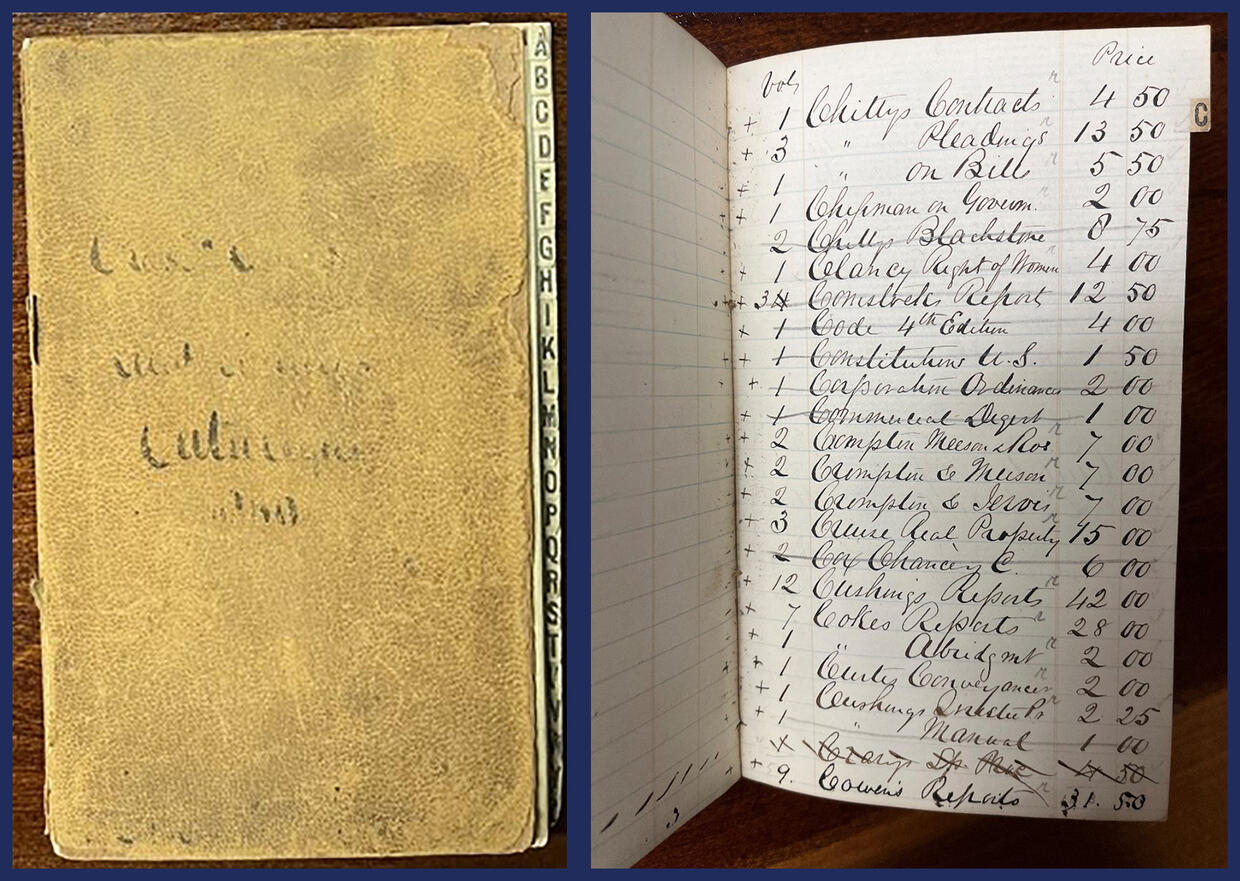 A
B
C
D
E
F
G
H
I
K
L
M
N
O
P
Q
R
S
T
Vols Price
C
+ 1 Chittys Contracts r 4 50
+ 3 " Pleadings r 13 50
+ 1 " on Bills r 5 50
+ 1 Chipman on Governm. r 2 00
2 Chittys Blackstone 8 75
+ 1 Clancy Right of Women 4 00
+ 3 4 Comstocks Report 12 50
+ 1 Code 4th Edition 4 00
+ 1 Constitutions U.S. 1 50
+ 1 Corporation Ordinances 2 00
+ 1 Commercial Digest 1 00
+ 2 Crompton Meeson & Ros r 7 00
+ 2 Crompton & Meeson r 7 00
+ 2 Crompton & Jervis r 7 00
+ 3 Cruise Real Property r 15 00
+ 2 Cox Chancery C. 6 00
+ 12 Cushings Reports r 42 00
+ 7 Cokes Reports r 28 00
+ 1 " Abridgmt r 2 00
+ 1 Curtis Conveyancer r 2 00
+ 1 Cushings Pr r 2 25
+ 1 " Manual 1 00
4 50
+ 9. Cowen's Reports 31. 50
3